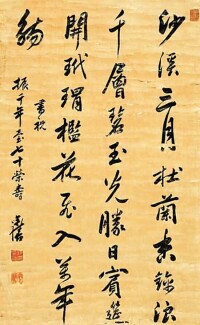 沙溪三月杜蘭香錦浪
千層碧玉光勝日賓筵
開玳瑁檻花飛入萬年
觴
書祝
振千年臺七十榮壽